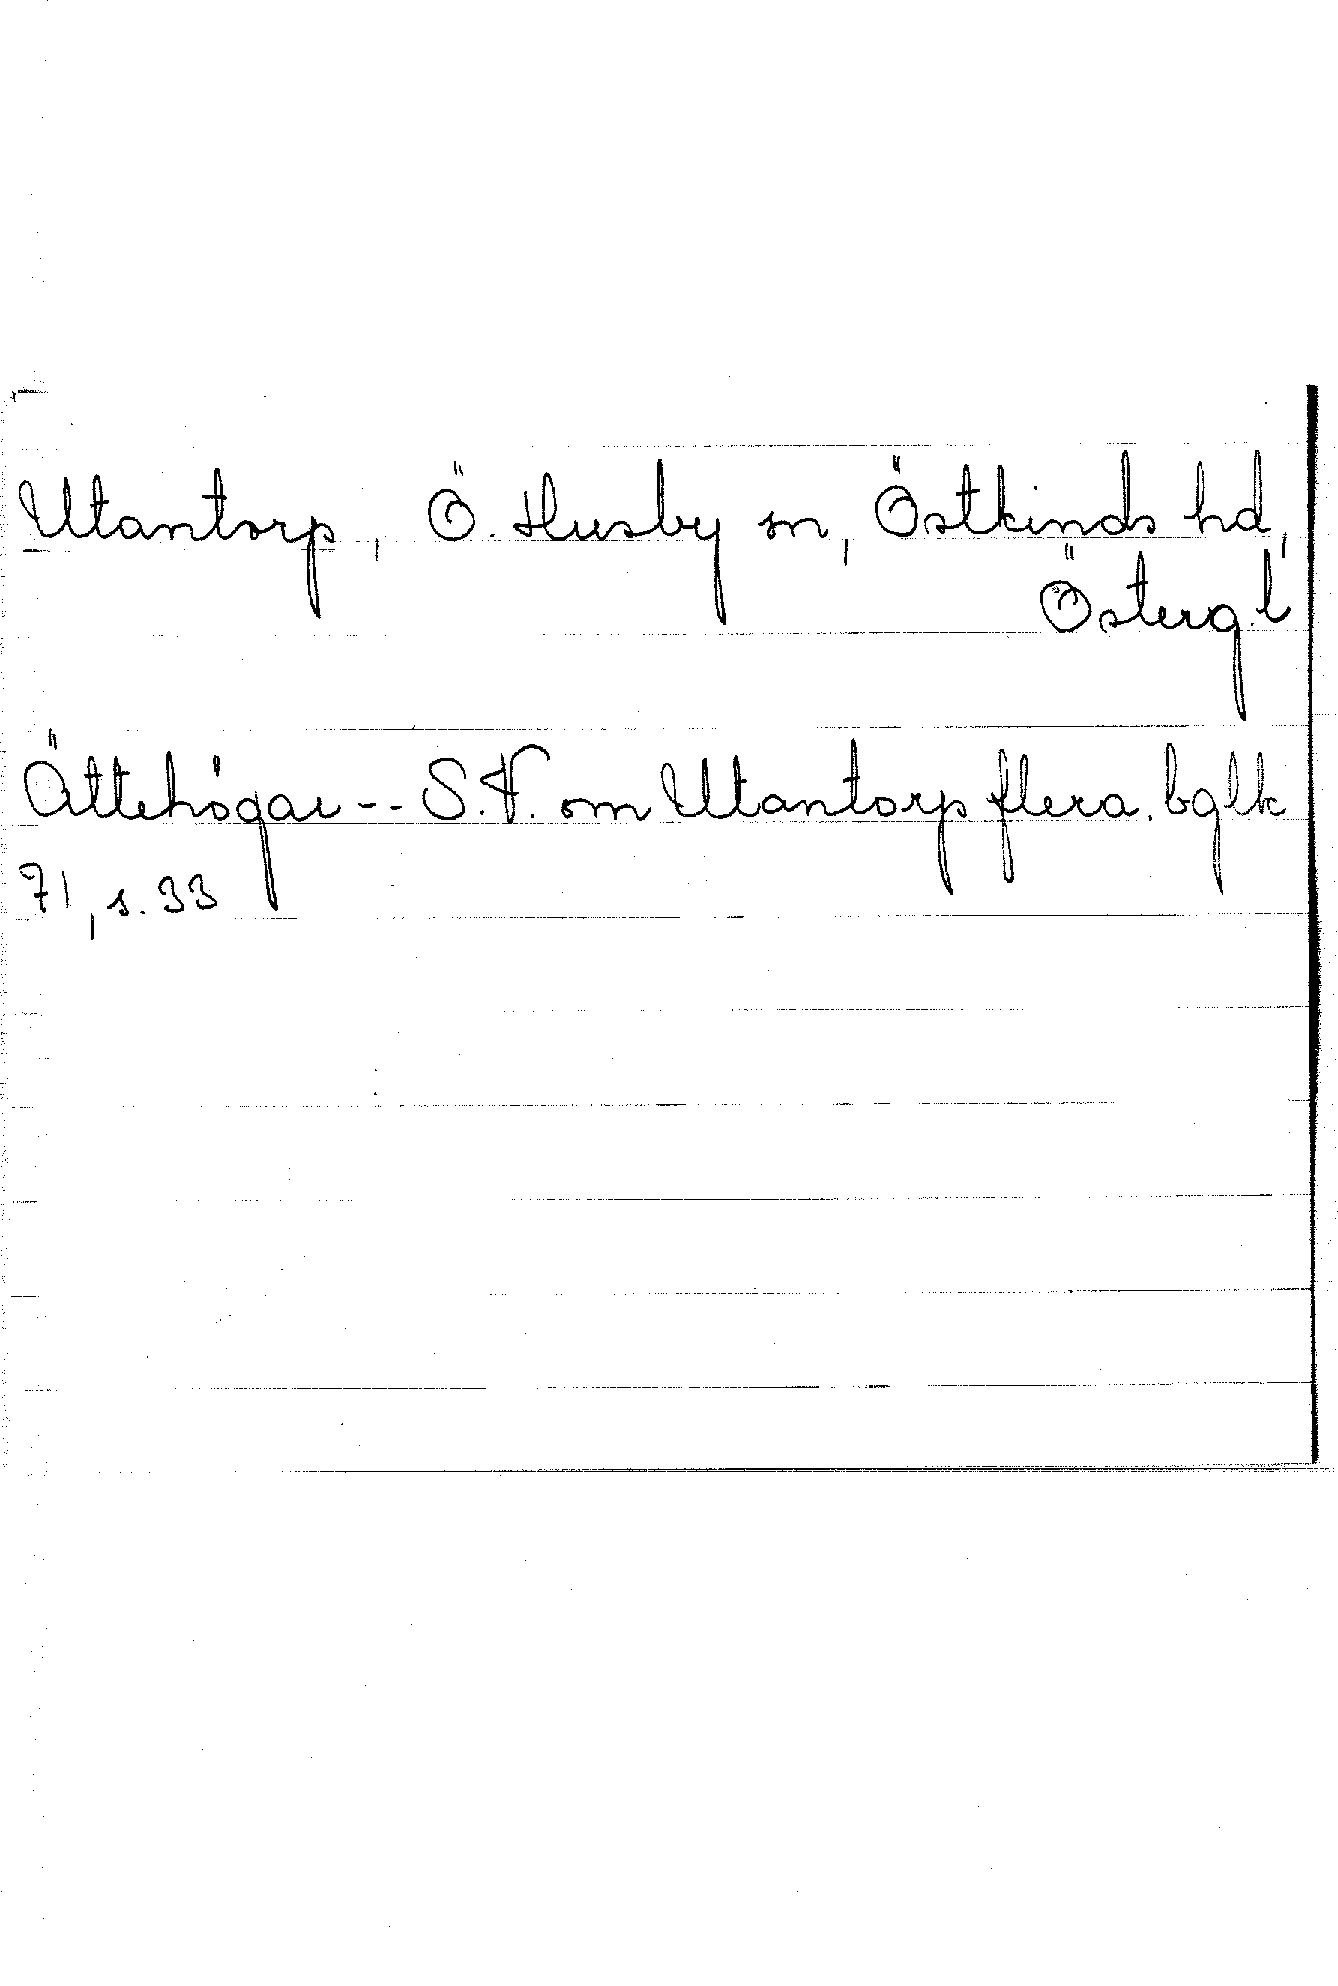 Utantorp, Ö. Husby sn, Östkinds hd,
Österg.l
Ättehögar -- S.V. om Utantorp flera. bglk
71, s. 33